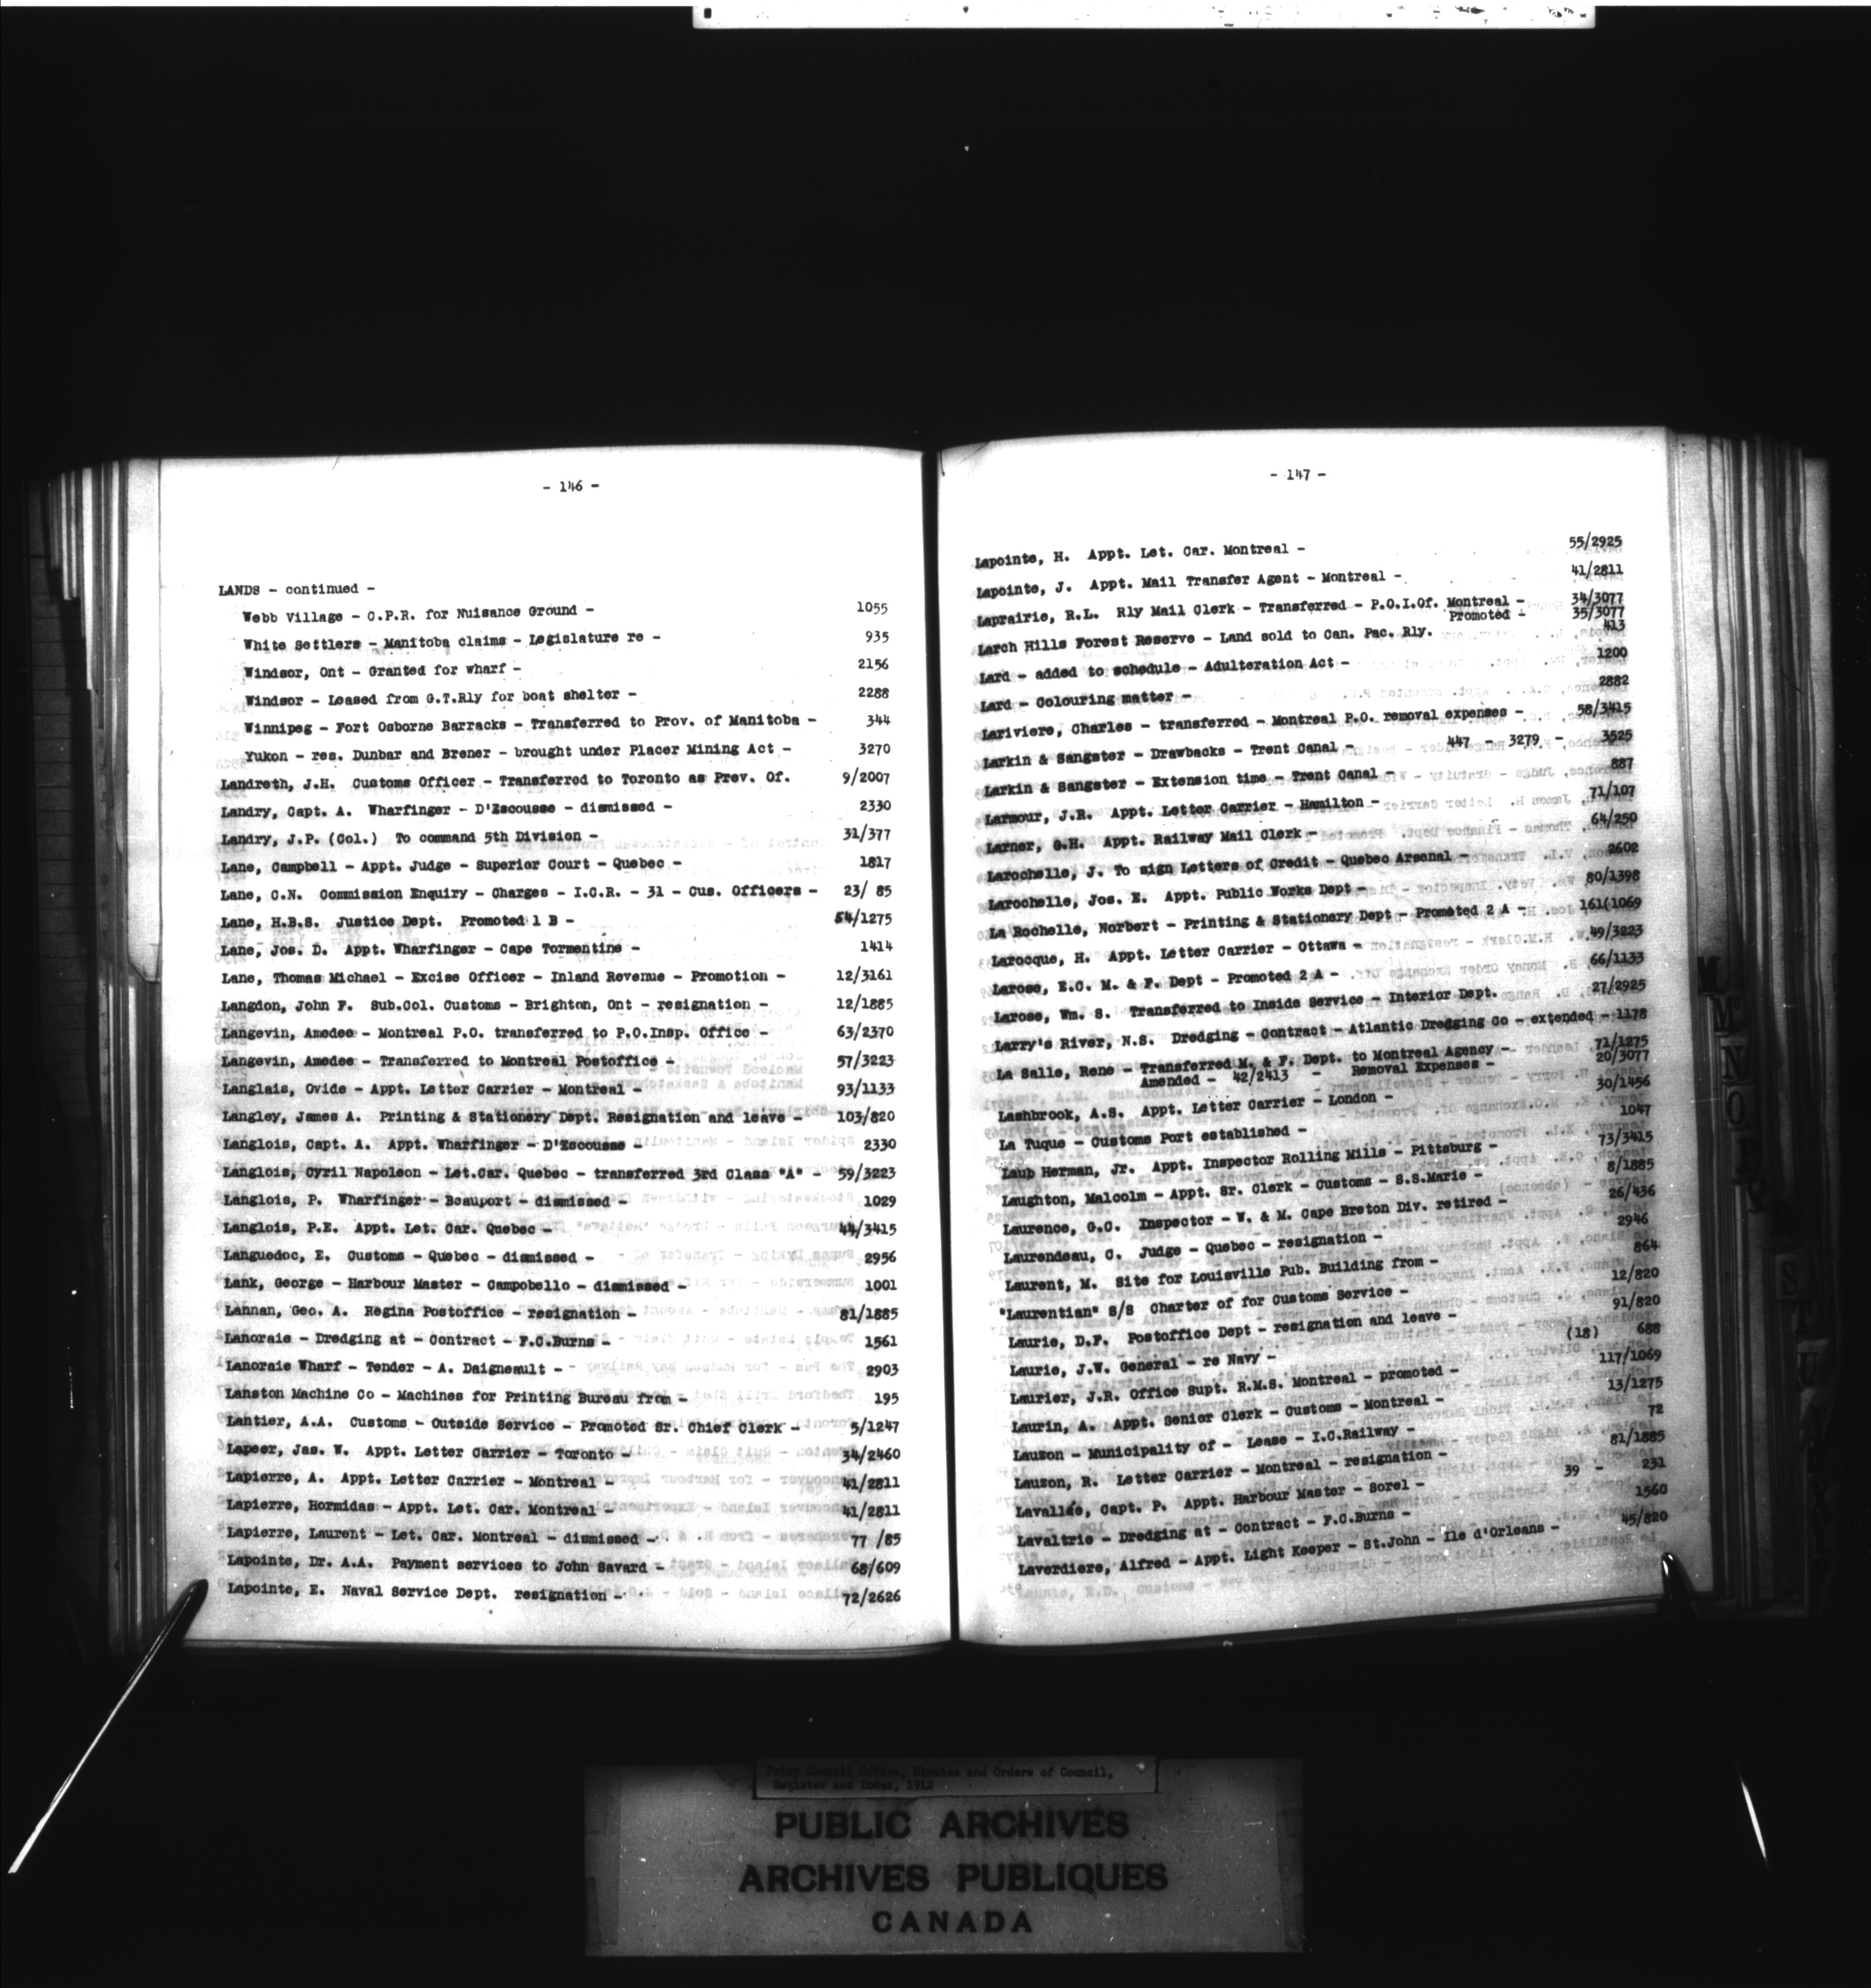 - 146 -
LANDS - continued -
Webb Village - C.P.R. for Nuisance Ground - 1055
White Settlers - Manitoba claims - Legislature re - 935
Windsor, Ont - Granted for wharf - 2156
Windsor - Leased from G.T.Rly for boat shelter - 2288
Winnipeg - Fort Osborne Barracks - Transferred to Prov. of Manitoba - 344
Yukon - res. Dunbar and Brener - brought under Placer Mining Act - 3270
Landreth, J.H. Customs Officer - Transferred to Toronto as Prev. Of. 9/2007
Landry, Capt. A. Wharfinger - D'Escousse - dismissed - 2330
Landry, J.P. (Col.) To command 5th Division - 31/377
Lane, Campbell - Appt. Judge - Superior Court - Quebec - 1817
Lane, C.N. Commission Enquiry - Charges - I.C.R. - 31 - Cus. Officers - 23/ 85
Lane, H.B.S. Justice Dept. Promoted 1 B - 54/1275
Lane, Jos. D. Appt. Wharfinger - Cape Tormentine - 1414
Lane, Thomas Michael - Excise Officer - Inland Revenue - Promotion - 12/3161
Langdon, John F. Sub.Col. Customs - Brighton, Ont - resignation - 12/1885
Langevin, Amedee - Montreal P.O. transferred to P.O.Insp. Office - 63/2370
Langevin, Amedee - Transferred to Montreal Postoffice - 57/3223
Langlais, Ovide - Appt. Letter Carrier - Montreal - 93/1133
Langley, James A. Printing & Stationery Dept. Resignation and leave - 103/820
Langlois, Capt. A. Appt. Wharfinger - D'Escousse - 2330
Langlois, Cyril Napoleon - Let.Car. Quebec - transferred 3rd Class "A" - 59/3223
Langlois, P. Wharfinger - Beauport - dismissed - 1029
Langlois, P.E. Appt. Let. Car. Quebec - 44/3415
Languedoc, E. Customs - Quebec - dismissed - 2956
Lank, George - Harbour Master - Campobello - dismissed - 1001
Lannan, Geo. A. Regina Postoffice - resignation - 81/1885
Lanoraie - Dredging at - Contract - F.C.Burns - 1561
Lanoraie Wharf - Tender - A. Daigneault - 2903
Lanston Machine Co - Machines for Printing Bureau from - 195
Lantier, A.A. Customs - Outside Service - Promoted Sr. Chief Clerk - 5/1247
Lapeer, Jas. W. Appt. Letter Carrier - Toronto - 34/2460
Lapierre, A. Appt. Letter Carrier - Montreal - 41/2811
Lapierre, Hormidas - Appt. Let. Car. Montreal - 41/2811
Lapierre, Laurent - Let. Car. Montreal - dismissed - 77 /85
Lapointe, Dr. A.A. Payment services to John Savard - 68/609
Lapointe, E. Naval Service Dept. resignation - 72/2626
- 147 -
Lapointe, H. Appt. Let. Car. Montreal - 55/2925
Lapointe, J. Appt. Mail Transfer Agent - Montreal - 41/2811
Laprairie, R.L. Rly Mail Clerk - Transferred - P.O.I.Of. Montreal - 34/3077
Promoted - 35/3077
Larch Hills Forest Reserve - Land sold to Can. Pac. Rly. 413
Lard - added to schedule - Adulteration Act - 1200
Lard - Colouring matter - 2882
Lariviere, Charles - transferred - Montreal P.O. removal expenses - 58/3415
Larkin & Sangster - Drawbacks - Trent Canal - 447 - 3279 - 3525
Larkin & Sangster - Extension time - Trent Canal - 887
Larmour, J.R. Appt. Letter Carrier - Hamilton - 71/107
Larner, G.H. Appt. Railway Mail Clerk - 64/250
Larochelle, J. To sign Letters of Credit - Quebec Arsenal - 2602
Larochelle, Jos. E. Appt. Public Works Dept - 80/1398
La Rochelle, Norbert - Printing & Stationery Dept - Promoted 2 A - 161(1069
Larocque, H. Appt. Letter Carrier - Ottawa - 49/3223
Larose, E.C. M. & F. Dept - Promoted 2 A - 66/1133
Larose, Wm. S. Transferred to Inside Service - Interior Dept. 27/2925
Larry's River, N.S. Dredging - Contract - Atlantic Dredging Co - extended - 1178
La Salle, Rene - Transferred M. & F. Dept. to Montreal Agency - 71/1275
Amended - 42/2413 - Removal Expenses - 20/3077
Lashbrook, A.S. Appt. Letter Carrier - London - 30/1456
La Tuque - Customs Port established - 1047
Laub Herman, Jr. Appt. Inspector Rolling Mills - Pittsburg - 73/3415
Laughton, Malcolm - Appt. Sr. Clerk - Customs - S.S.Marie - 8/1885
Laurence, G.C. Inspector - W. & M. Cape Breton Div. retired - 26/436
Laurendeau, C. Judge - Quebec - resignation - 2946
Laurent, M. Site for Louisville Pub. Building from - 864
"Laurentian" S/S Charter of for Customs Service - 12/820
Laurie, D.F. Postoffice Dept - resignation and leave - 91/820
Laurie, J.W. General - re Navy - (18) 688
Laurier, J.R. Office Supt. R.M.S. Montreal - promoted - 117/1069
Laurin, A. Appt. Senior Clerk - Customs - Montreal - 13/1275
Lauzon - Municipality of - Lease - I.C.Railway - 72
Lauzon, R. Letter Carrier - Montreal - resignation - 81/1885
Lavallée, Capt. P. Appt. Harbour Master - Sorel - 39 - 231
Lavaltrie - Dredging at - Contract - F.C.Burns - 1560
Laverdiere, Alfred - Appt. Light Keeper - St.John - Ile d'Orleans - 45/820
Privy Council Office, Minutes and Orders of Council,
Register and Index, 1912
PUBLIC ARCHIVES
ARCHIVES PUBLIQUES
CANADA